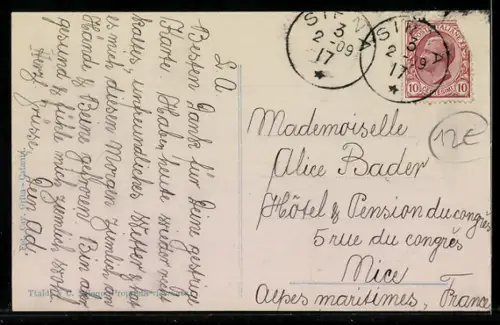 L. A.
Besten Dank für Deine gestrige
Karte. Haben heute wieder recht
kaltes, unfreundliches Wetter & hat
es mich diesen Morgen ziemlich an
Hände & Beine gefroren! Bin aber
gesund & fühle mich ziemlich wohl
Herzl. Grüsse,
Dein Ad.
SIENA
3
2-09
17
SIENA
3
2-09
17
10 10
12€
Mademoiselle
Alice Bader
Hôtel & Pension du congrès
5 rue du congrès
Nice
Alpes maritimes, France